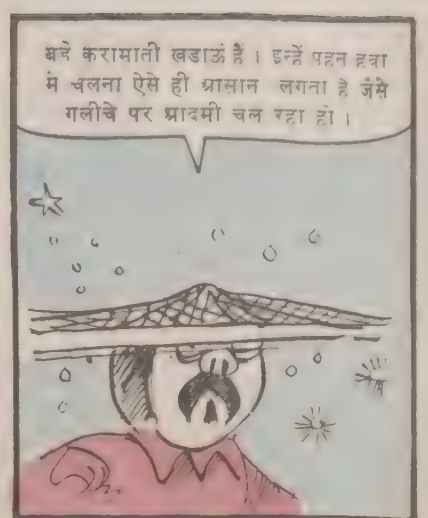 बड़े करामाती खडाऊं हैं । इन्हें पहन हवा
में चलना ऐसे ही आसान लगता है जैसे
गलीचे पर आदमी चल रहा हो ।